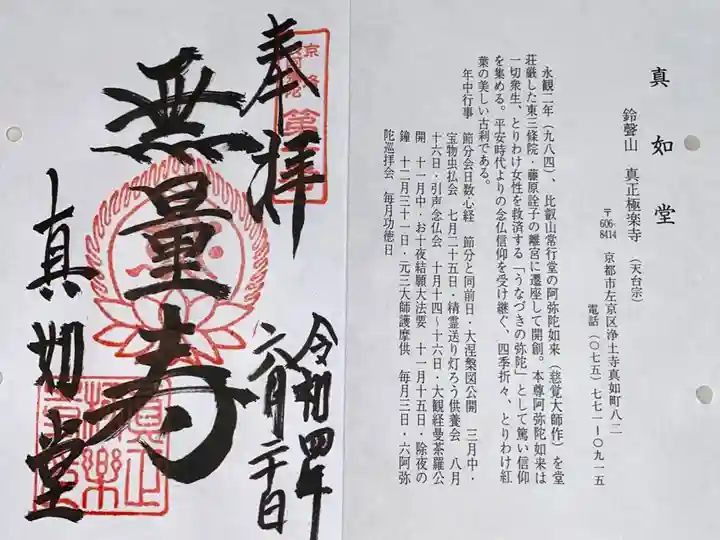 真如堂
鈴聲山 真正極楽寺(天台宗)
〒606-8414 京都市左京区浄土寺真如町八二
電話(〇七五)七七一-〇九一五
永観二年(九八四)、比叡山常行堂の阿弥陀如来(慈覚大師作)を堂
荘厳した東三條院・藤原詮子の離宮に遷座して開創。本尊阿弥陀如来は
一切衆生、とりわけ女性を救済する「うなづきの弥陀」として篤い信仰
を集める。平安時代よりの念仏信仰を受け継ぐ、四季折々、とりわけ紅
葉の美しい古刹である。
年中行事 節分会日数心経 節分と同前日・大涅槃図公開 三月中・
宝物虫払会 七月二十五日・精霊送り灯ろう供養会 八月
十六日・引声念仏会 十月十四~十六日・大観経曼荼羅公
開 十一月中・お十夜結願大法要 十一月十五日・除夜の
鐘 十二月三十一日・元三大師護摩供 毎月三日・六阿弥
陀巡拝会 毎月功徳日
奉拝
令和四年
六月二十日
無量寿
真如堂